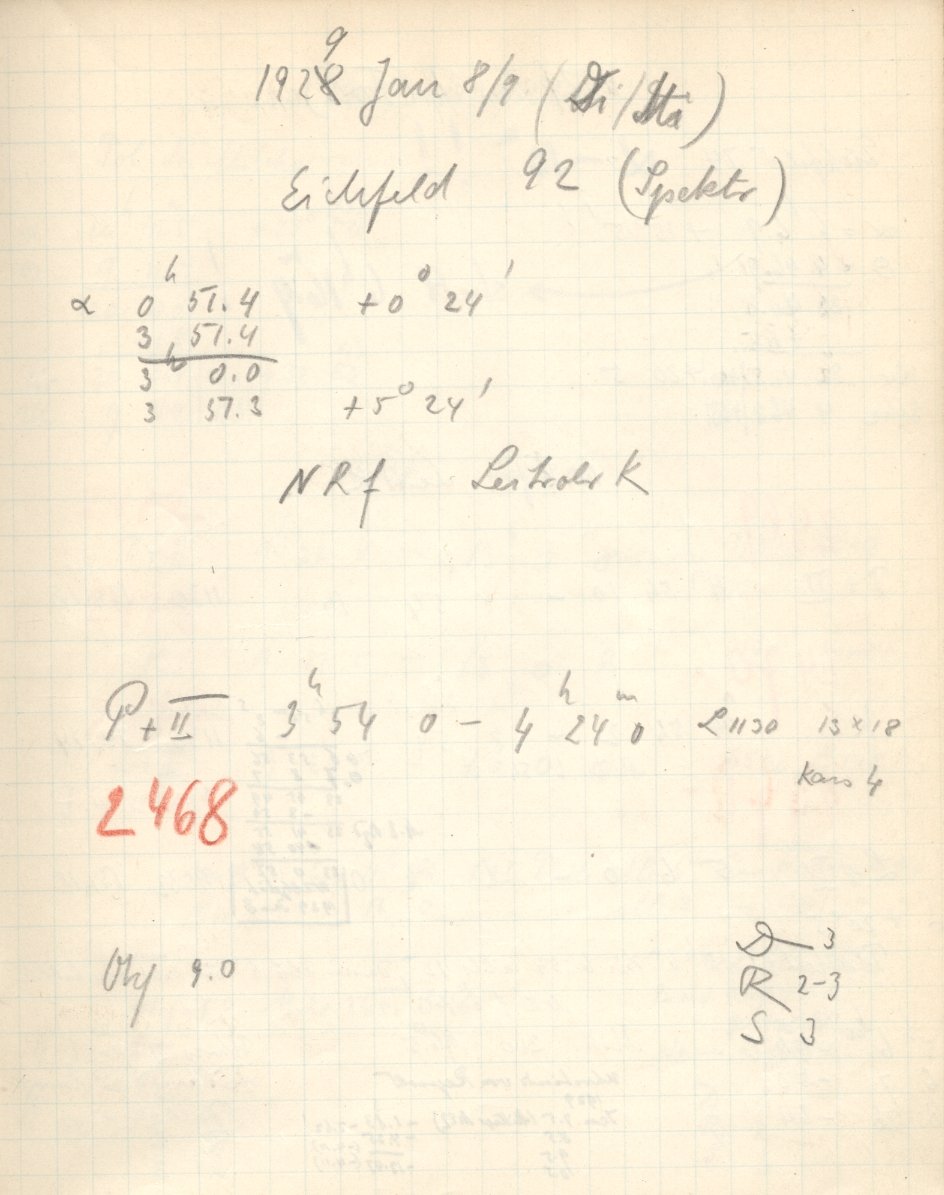 1929 Jan 8/9 (Di/Mi)
Eichfeld 92 (Spektr)
α 0 h 51.4 +0° 24'
3 51.4
3 h 0.0
3 37.3 +5° 24'
NRf Leitrohr K
P + II 3 h 54 0 – 4 h 24 m 0 L 1130 13 × 18
Kass 4
2468
Obj 9.0
D 3
R 2-3
S 3